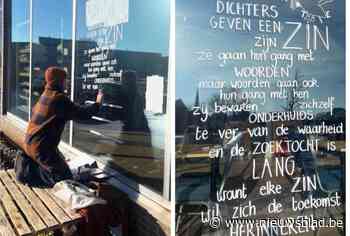 DICHTERS
GEVEN EEN
ZIJN ZIN
ze gaan hun gang met
WOORDEN
maar woorden gaan ook
hun gang met hen
zij bewaren zichzelf
ONDERHUIDS
te ver van de waarheid
en de ZOEKTOCHT is
LANG
want elke ZIN
wil zich de toekomst
HERINNEREN
www.nieuwsblad.be